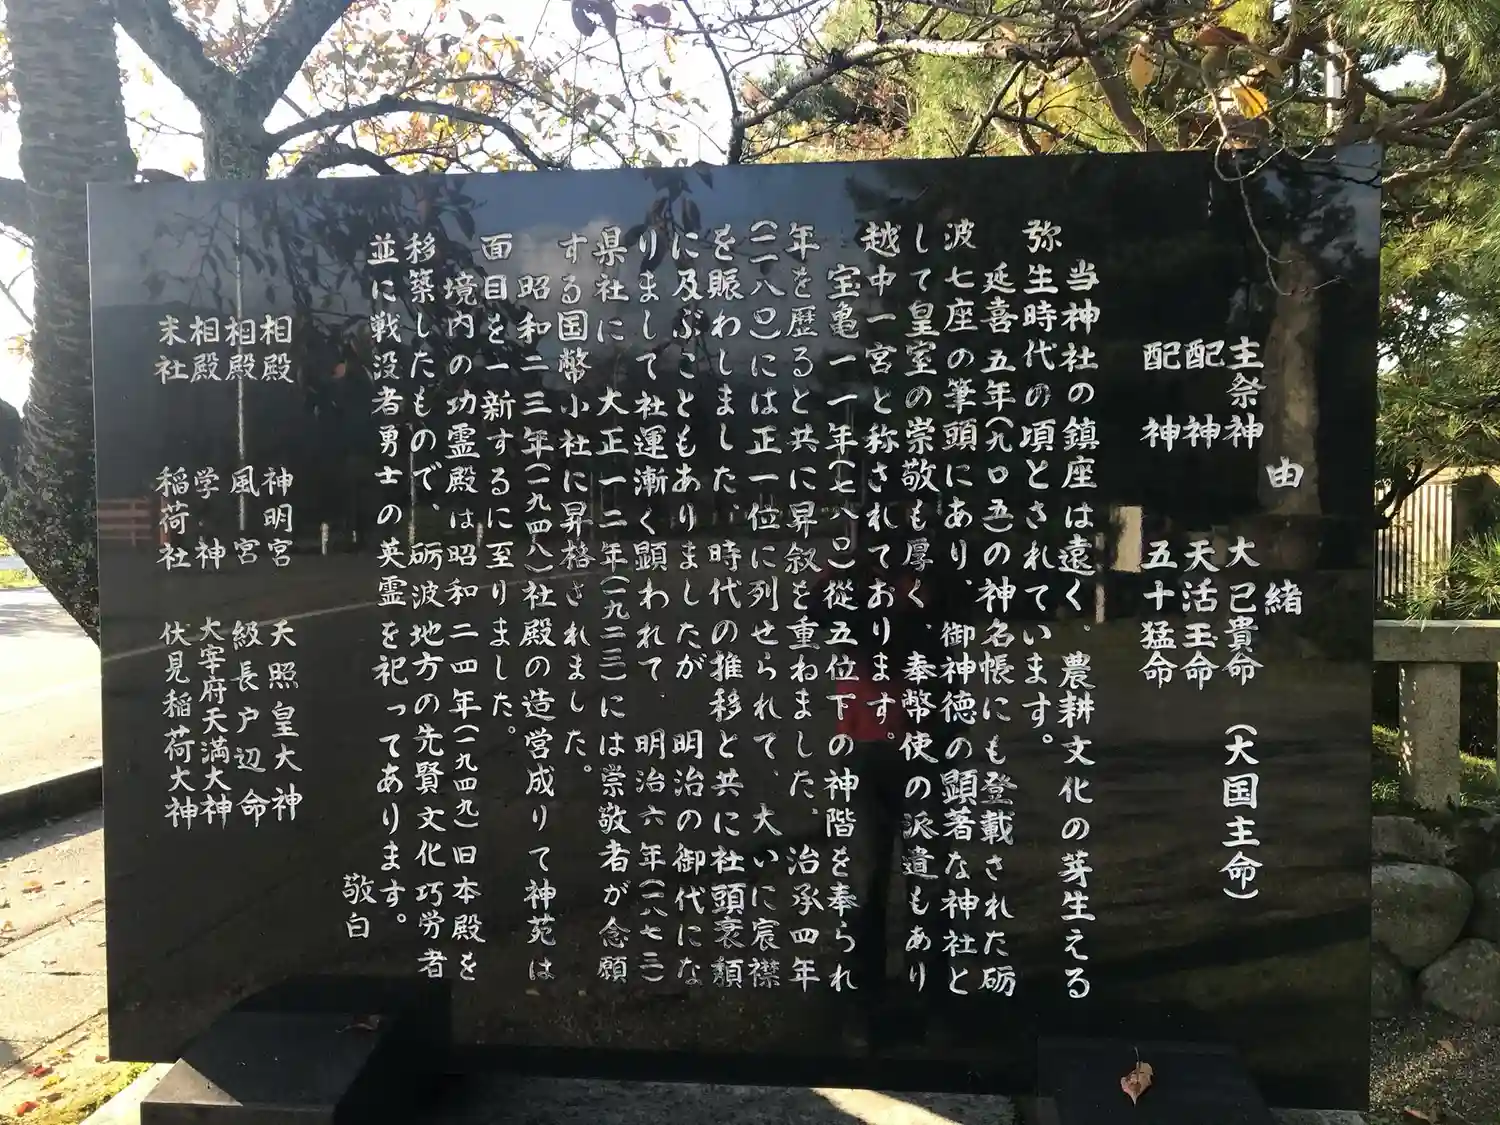 由緒
主祭神 大已貴命 (大国主命)
配神 天活玉命
配神 五十猛命
当神社の鎮座は遠く、農耕文化の芽生える
弥生時代の頃とされています。
延喜五年(九〇五)の神名帳にも登載された砺
波七座の筆頭にあり、御神徳の顕著な神社と
して皇室の崇敬も厚く、奉幣使の派遣もあり
越中一宮と称されております。
宝亀一一年(七八〇)從五位下の神階を奉られ
年を歴ると共に昇叙を重ねました、治承四年
(一一八〇)には正一位に列せられて、大いに宸襟
を賑わしました、時代の推移と共に社頭衰頽
に及ぶこともありましたが 明治の御代にな
りまして社運漸く顕われて、明治六年(一八七三)
県社に 大正一二年(一九二三)には崇敬者が念願
する国幣小社に昇格されました。
昭和二三年(一九四八)社殿の造営成りて神苑は
面目を一新するに至りました。
境内の功霊殿は昭和二四年(一九四九)旧本殿を
移築したもので、砺波地方の先賢文化巧労者
並に戦没者勇士の英霊を祀ってあります。
敬白
相殿 神明宮 天照皇大神
相殿 風宮 級長戸辺命
相殿 学神 大宰府天満大神
末社 稲荷社 伏見稲荷大神